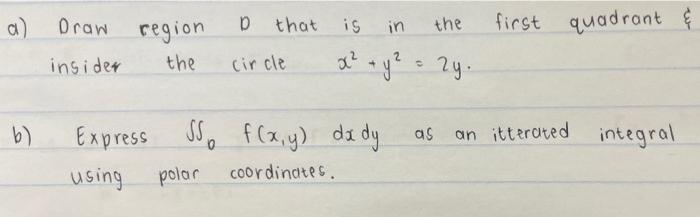 a) Draw region D that is in the first quadrant &
insider the circle x² + y² = 2y.
b) Express ∫∫_D f(x,y) dx dy as an itterated integral
using polar coordinates.